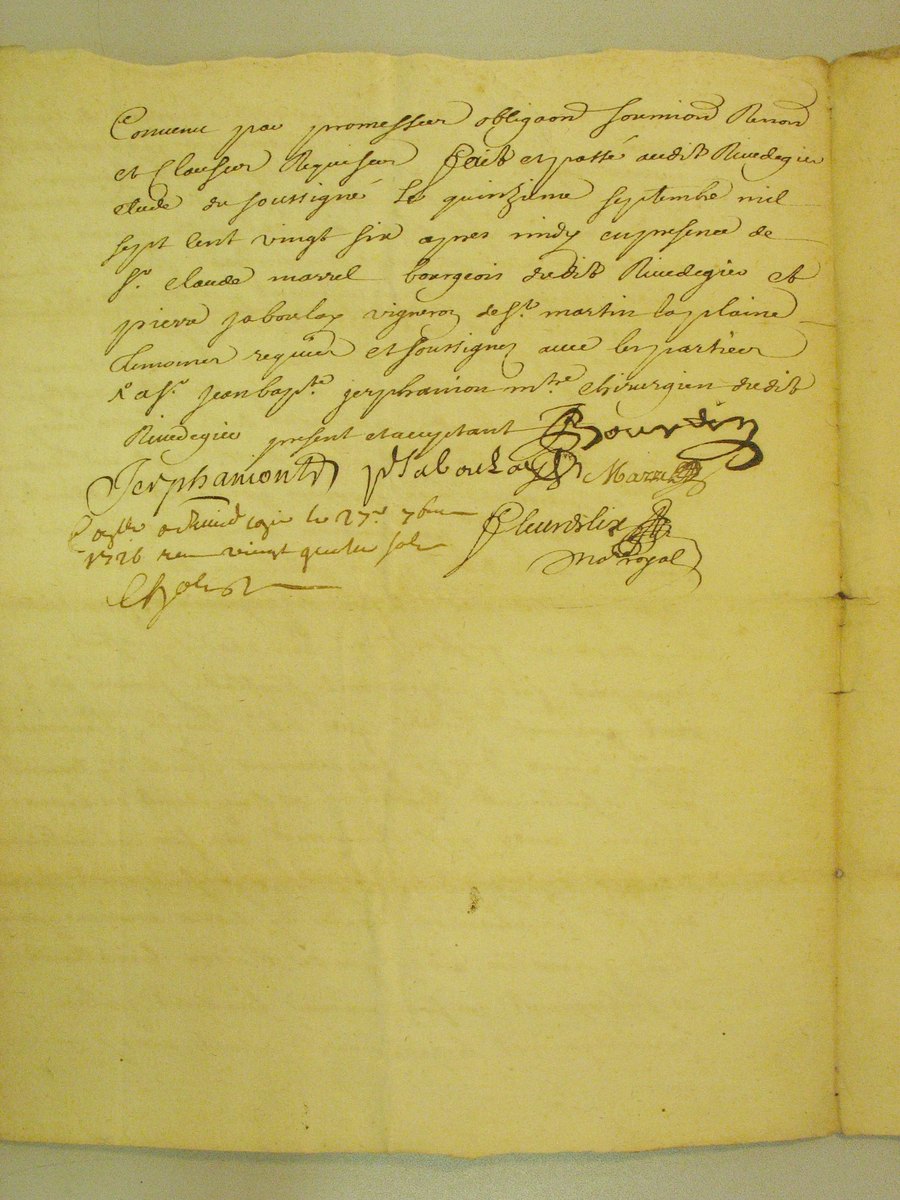 Convenu par promesses obligaon soumions Renons
et Clauses Requises fait et passé audit Rivedegier
etude du soussigné le quinzieme septembre mil
sept cent vingt six apres midy en presence de
Sr. claude marrel bourgeois dudit Rivedegier et
pierre jaboulay vigneron de St. martin la plaine
temoins requis et soussignez avec les parties
a Sr. jean bapte. jerphanion mtre. chirurgien dudit
Rivedegier present et acceptant Bourdin
Jerphanion P Jaboulay Marrel
le 27e 7bre
1726 vingt quatre sols
fleurdelix
nore royal